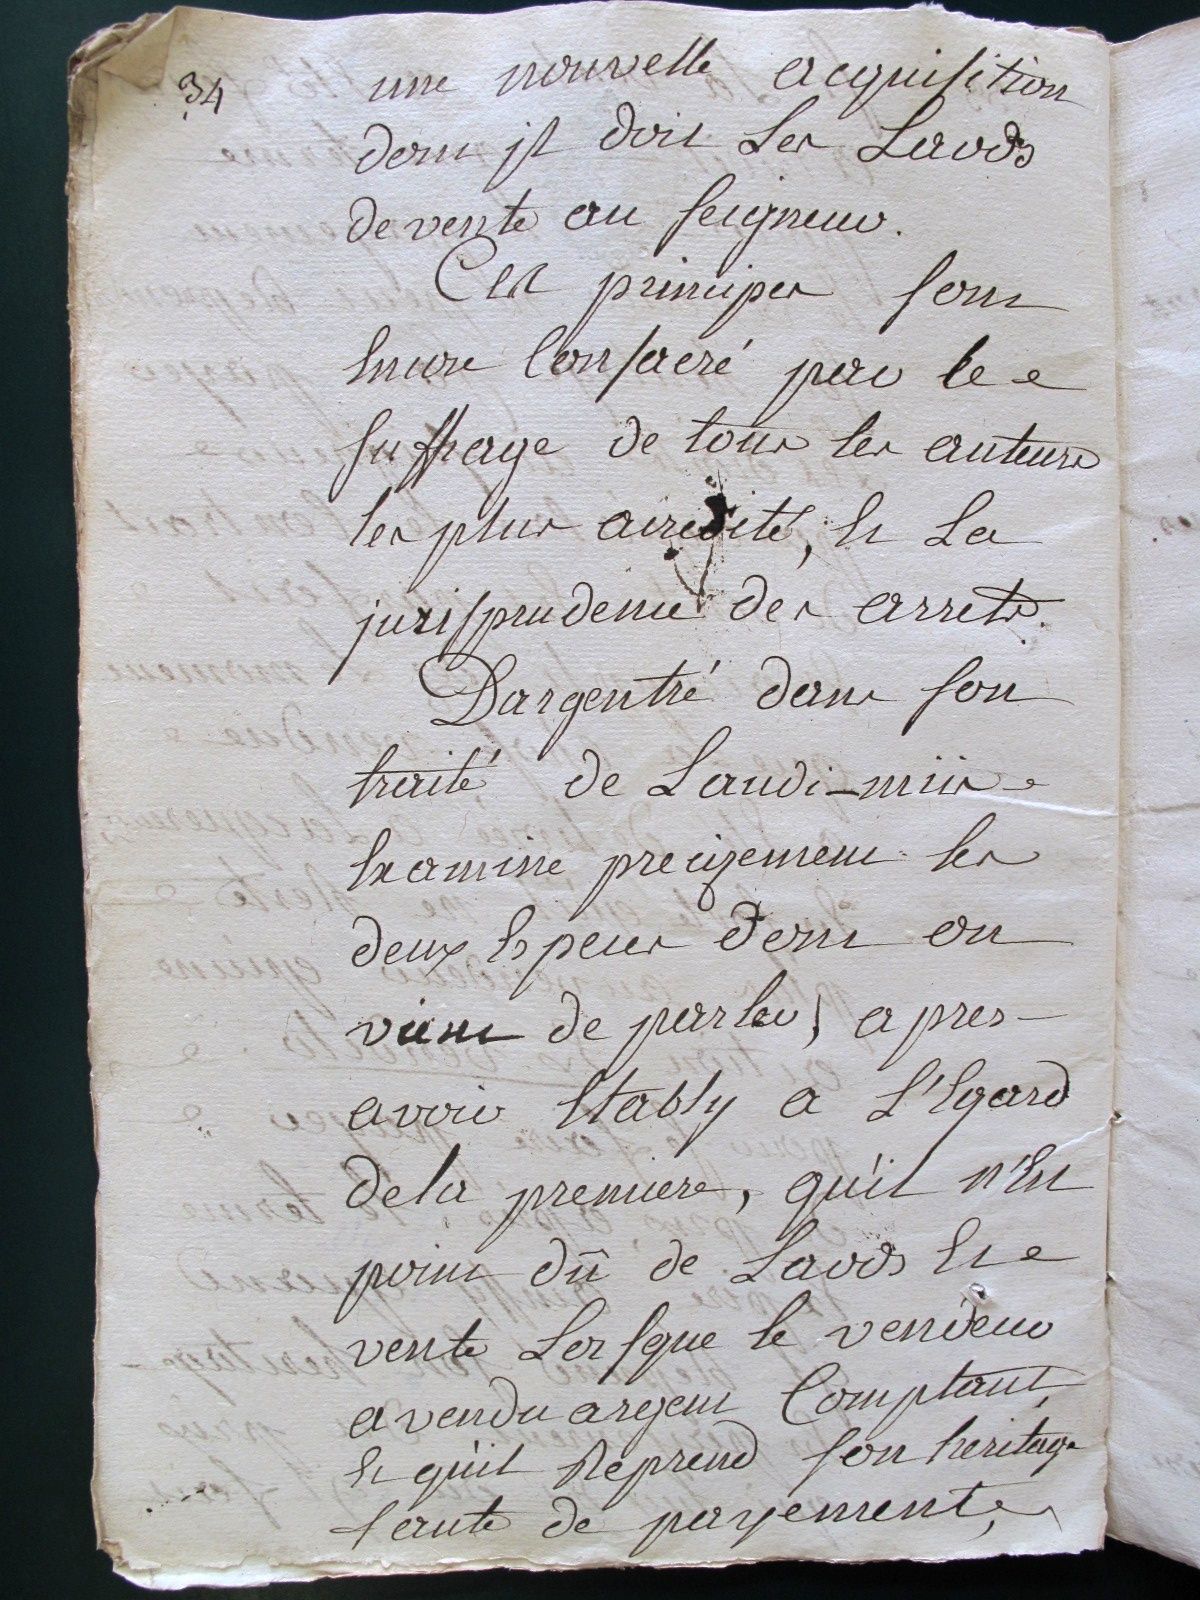 34
une nouvelle acquisition
dont jl doit Les Laods
de vente au seigneur.
Ces principes sont
encore Consacré par le
suffrage de tous les auteurs
les plus acredité, et La
jurisprudence des arrets.
Dargentré dans son
traité de Laudi-miis
Examine precizement les
deux Especes dont on
vient de parler, apres
avoir Etably a L'Egard
dela premiere, qu'il n'Est
point dû de Laods Et
vente Lorsque le vendeur
a vendu argent Comptant,
et qu'il Reprend son heritage
faute de payement,